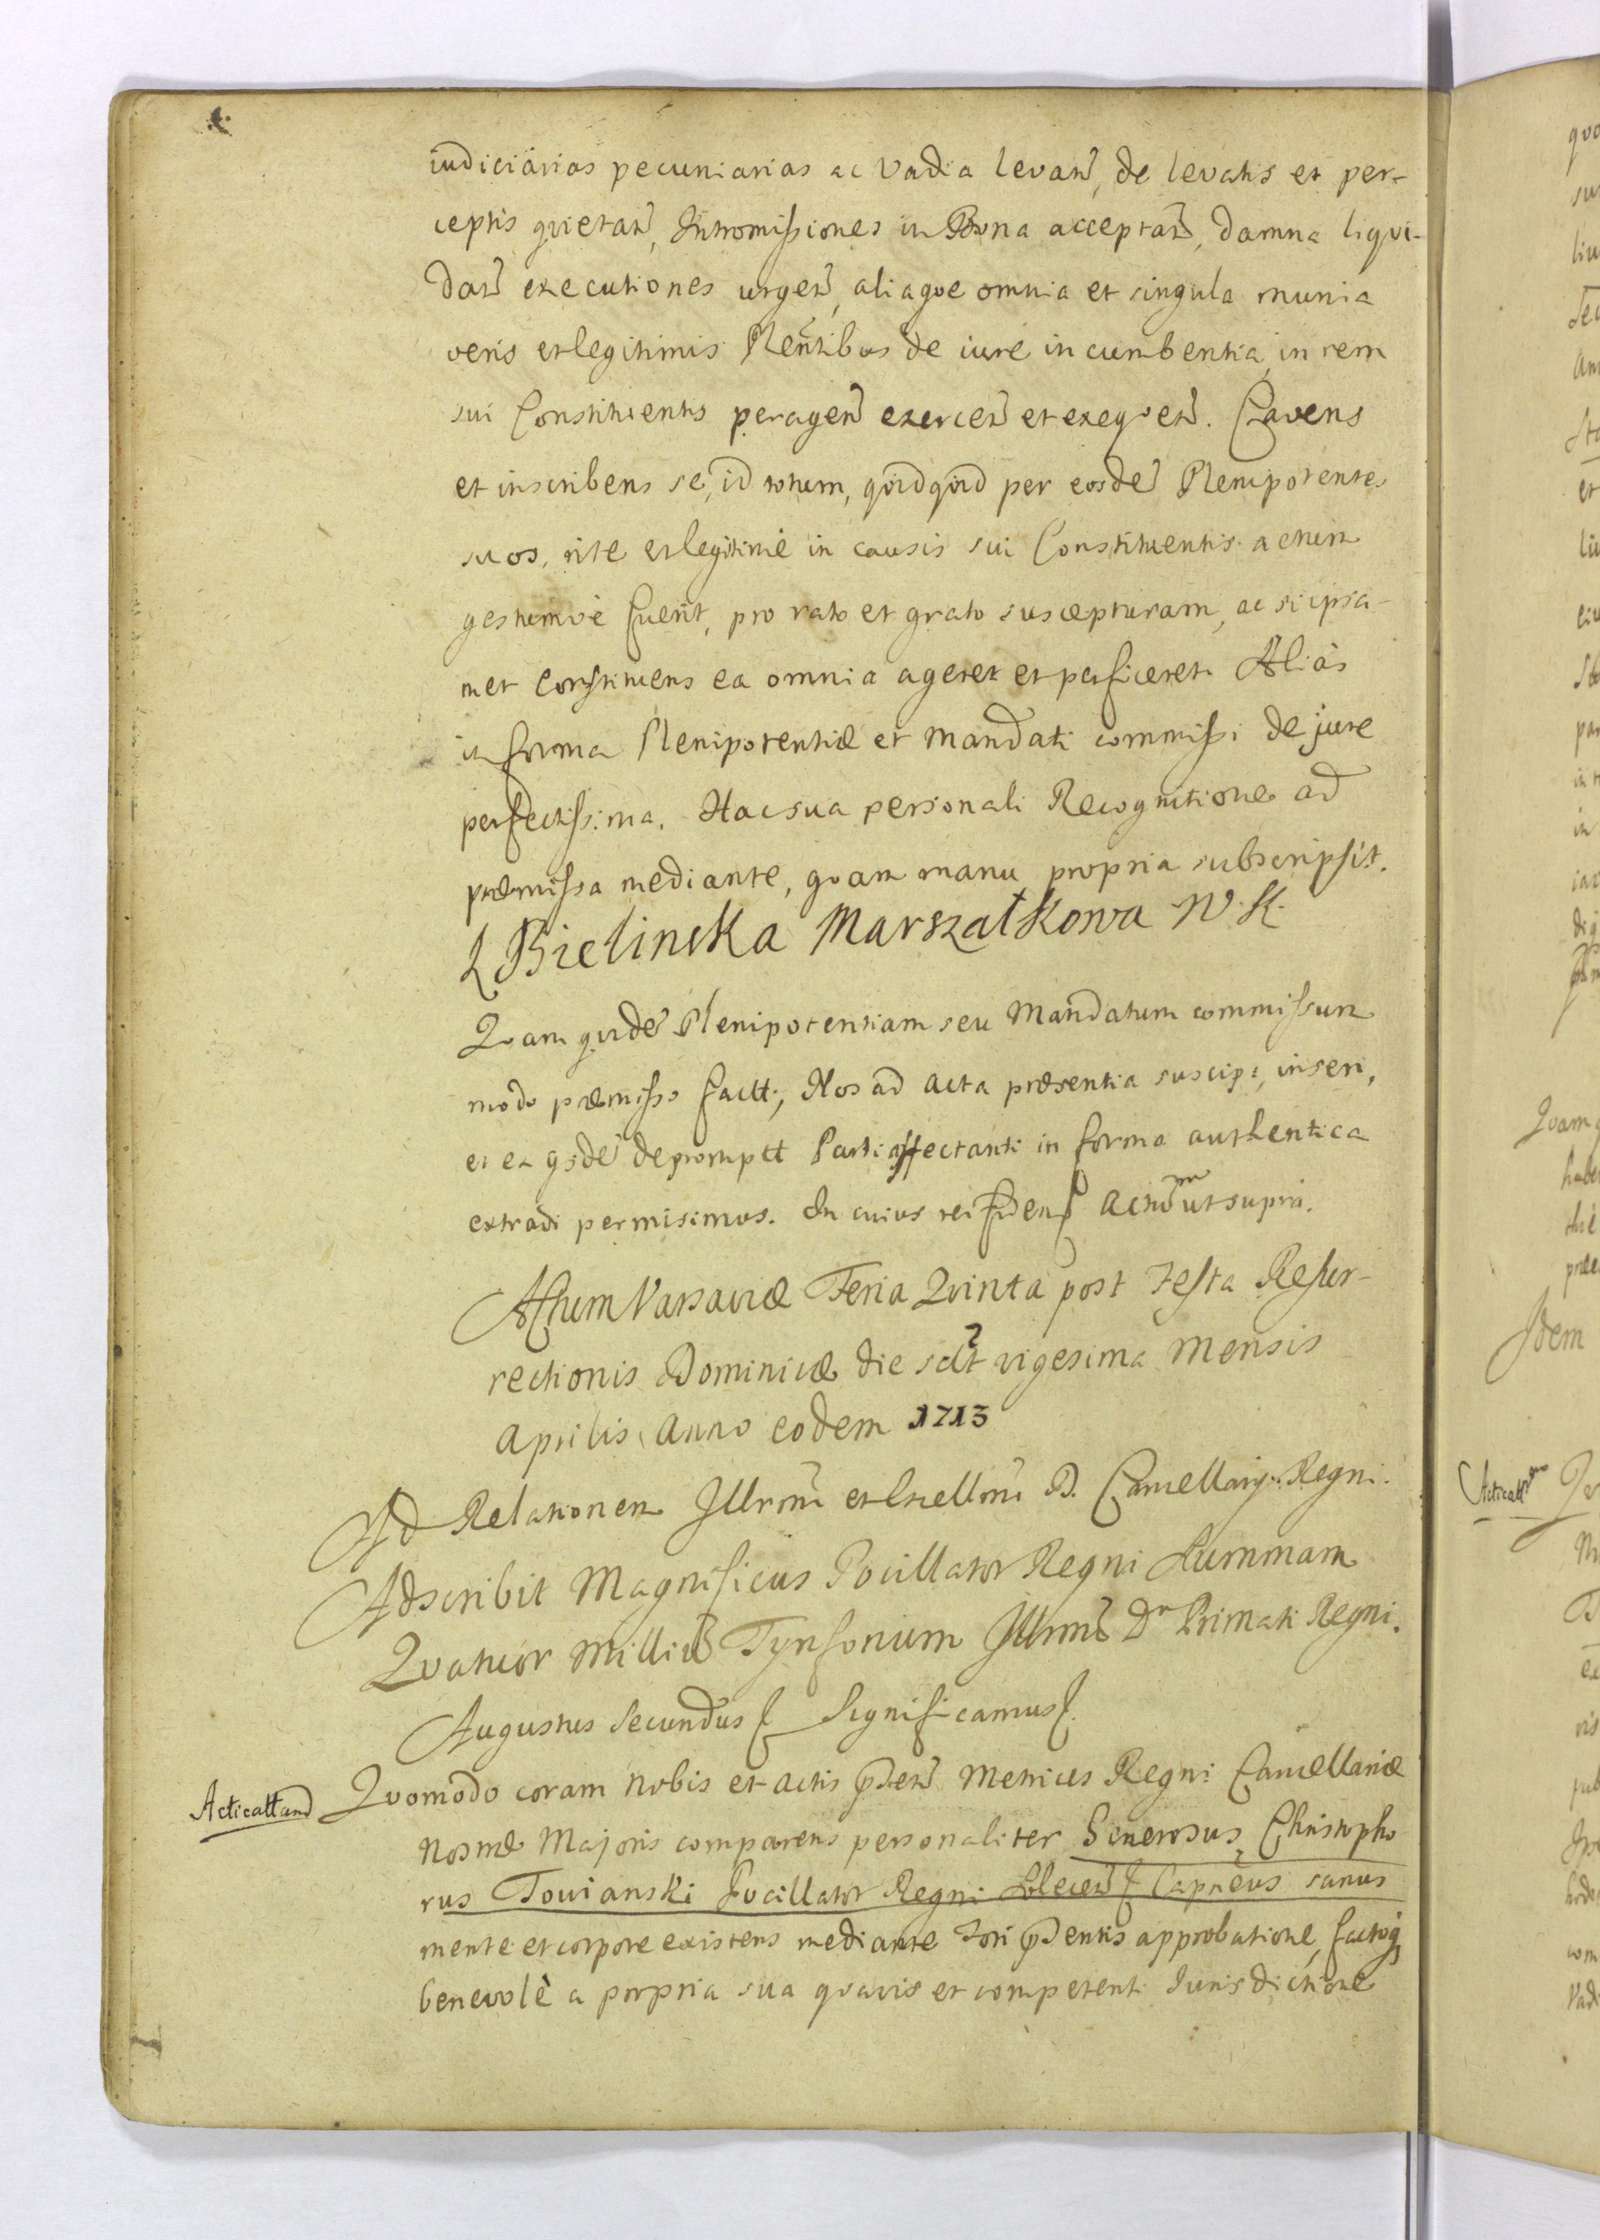 iudiciarias pecuniarias ac vadia levań, de levatis et per-
ceptis quietań, Intromissiones in Bona acceptań, damna liqui-
dań executiones urgeń, aliaque omnia et singula munia
veris et legitimis Plentibus de iure incumbentia, in rem
sui Constituentis perageń exerceń et exequeń. Cavens
et inscribens se, id totum, quidquid per eosdē Plenipotentes
suos, rite et legitimè in causis sui Constituentis actum
gestumvè fuerit, pro rato et grato suscepturam, ac si ipsa-
met constituens ea omnia ageret et perficeret. Aliàs
in forma Plenipotentiæ et Mandati commissi de jure
perfectissima. Hac sua personali Recognitione ad
præmissa mediante, quam manu propria subscripsit.
L Bielinska Marszałkowa W. K.
Quam quidē Plenipotentiam seu Mandatum commissum
modo præmisso factt, Nos ad acta præsentia suscipi, inseri,
et ex ysdē depromptt Parti affectanti in forma authentica
extradi permisimus. In cuius rei fidem Actum ut supra.
Actum Varsaviæ Feria Quinta post Festa Resur-
rectionis Dominicæ die sclt vigesima Mensis
Aprilis Anno eodem 1713
Ad Relationem Illrmi et Excellmi D. Cancellarij Regni.
Adscribit Magnificus Pocillator Regni Summam
Quatuor Milliū Tynfonum Illrmo Dno Primati Regni.
Augustus Secundus Significamus
Acticattand Quomodo coram Nobis et Actis pdeń Metrices Regni Cancellariæ
Nostræ Majoris comparens personaliter Generosus Christopho-
rus Towianski Pocillator Regni Capneus sanus
mente et corpore existens mediante Fori pdentis approbatione, factaq
benevolè a propria sua quavis et competenti Iurisdictione